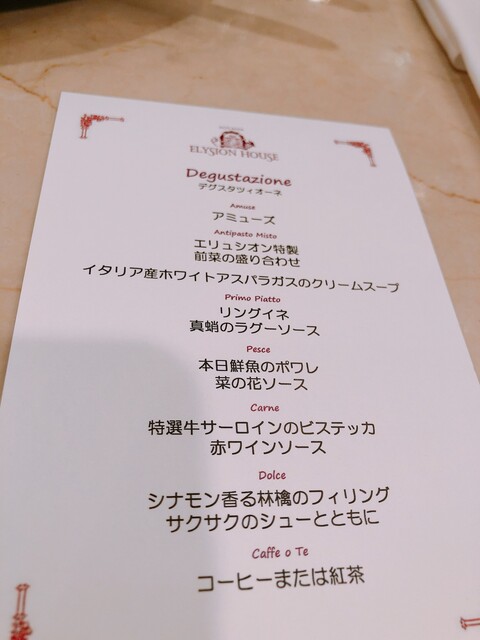 ELYSION HOUSE
Degustazione
デグスタツィオーネ
Amuse
アミューズ
Antipasto Misto
エリュシオン特製
前菜の盛り合わせ
イタリア産ホワイトアスパラガスのクリームスープ
Primo Piatto
リングイネ
真蛸のラグーソース
Pesce
本日鮮魚のポワレ
菜の花ソース
Carne
特選牛サーロインのビステッカ
赤ワインソース
Dolce
シナモン香る林檎のフィリング
サクサクのシューとともに
Caffe o Te
コーヒーまたは紅茶